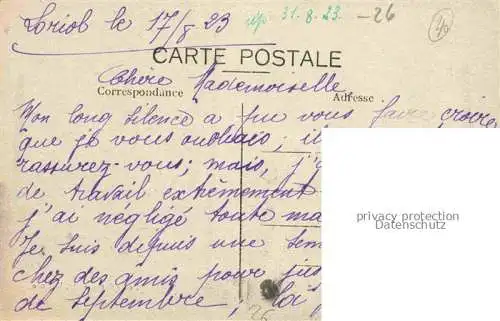 Loriol le 17/8 23
rép 31.8.23. -26
CARTE POSTALE
Chère Mademoiselle
Correspondance Adresse
Mon long silence a pu vous faire croire
que je vous oubliais; il
rassurez-vous; mais, j'
de travail extrêmement
j'ai négligé toute ma
Je suis depuis une sem
chez des amis pour jus
de septembre,
privacy protection
Datenschutz
26